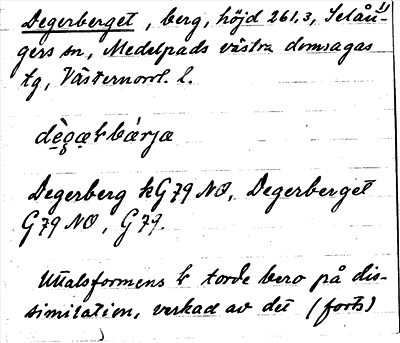 Degerberget, berg, höjd 261,3, Selån-
gers sn, Medelpads västra domsagas
tg, Västernorrl. l.
Degerberg kG79 NO, Degerberget
G79 NO, G79.
Uttalsformens b torde bero på dis-
similation, verkad av det (forts)